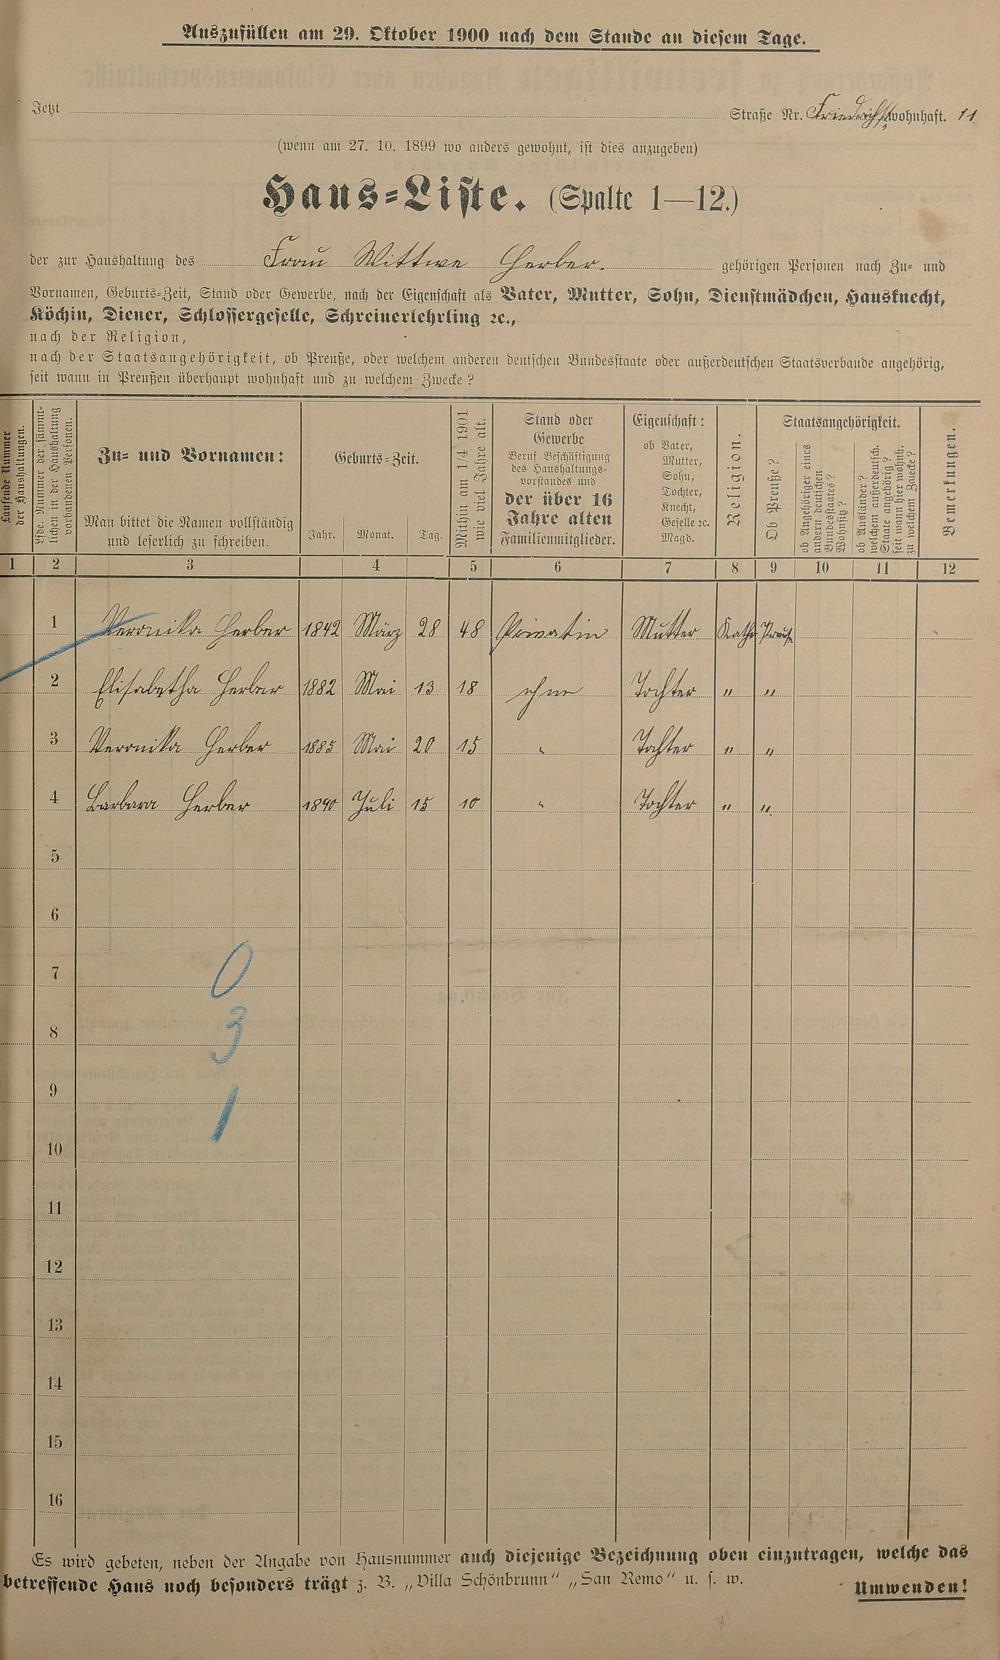 Auszufüllen am 29. Oktober 1900 nach dem Stande an diesem Tage.
Jetzt Straße Nr. Friedrichst. wohnhaft. 11
(wenn am 27. 10. 1899 wo anders gewohnt, ist dies anzugeben)
Haus-Liste. (Spalte 1—12.)
der zur Haushaltung des Frau Wittwe Herber. gehörigen Personen nach Zu- und
Vornamen, Geburts-Zeit, Stand oder Gewerbe, nach der Eigenschaft als Vater, Mutter, Sohn, Dienstmädchen, Hausknecht,
Köchin, Diener, Schlossergeselle, Schreinerlehrling ꝛc.,
nach der Religion,
nach der Staatsangehörigkeit, ob Preuße, oder welchem anderen deutschen Bundesstaate oder außerdeutschen Staatsverbande angehörig,
seit wann in Preußen überhaupt wohnhaft und zu welchem Zwecke?
Laufende Nummer
der Haushaltungen.
Lfde. Nummer der sämmt-
lichen in der Haushaltung
vorhandenen Personen.
Zu- und Vornamen:
Man bittet die Namen vollständig
und leserlich zu schreiben.
Geburts-Zeit.
Jahr. Monat. Tag.
Mithin am 1/4 1901
wie viel Jahre alt.
Stand oder
Gewerbe
Beruf Beschäftigung
des Haushaltungs-
vorstandes und
der über 16
Jahre alten
Familienmitglieder.
Eigenschaft:
ob Vater,
Mutter,
Sohn,
Tochter,
Knecht,
Geselle ꝛc.
Magd.
Religion.
Staatsangehörigkeit.
Ob Preuße?
ob Angehöriger eines
andern deutschen
Bundesstaates?
Wohnsitz?
ob Ausländer?
welchem außerdeutsch.
Staate angehörig?
seit wann hier wohnh.
zu welchem Zwecke?
Bemerkungen.
1 2 3 4 5 6 7 8 9 10 11 12
1 Veronika Herber 1842 März 28 48 Privatin Mutter Kath. Preuße
2 Elisabetha Herber 1882 Mai 13 18 ohne Tochter " "
3 Veronika Herber 1885 Mai 20 15 " Tochter " "
4 Barbara Herber 1890 Juli 15 10 " Tochter " "
5
6
7 0
8 3
9
1
10
11
12
13
14
15
16
Es wird gebeten, neben der Angabe von Hausnummer auch diejenige Bezeichnung oben einzutragen, welche das
betreffende Haus noch besonders trägt z. B. „Villa Schönbrunn“ „San Remo“ u. s. w.
Umwenden!